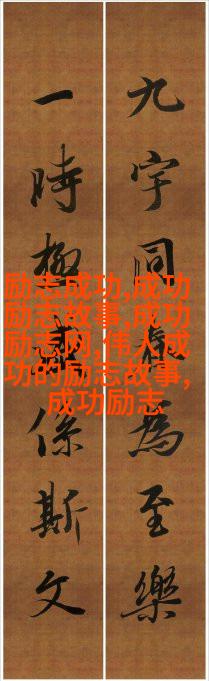 九宇同為至樂
一時極係斯文
励志成功,成功
励志故事,成功
励志网,伟人成
功的励志故事,
成功励志